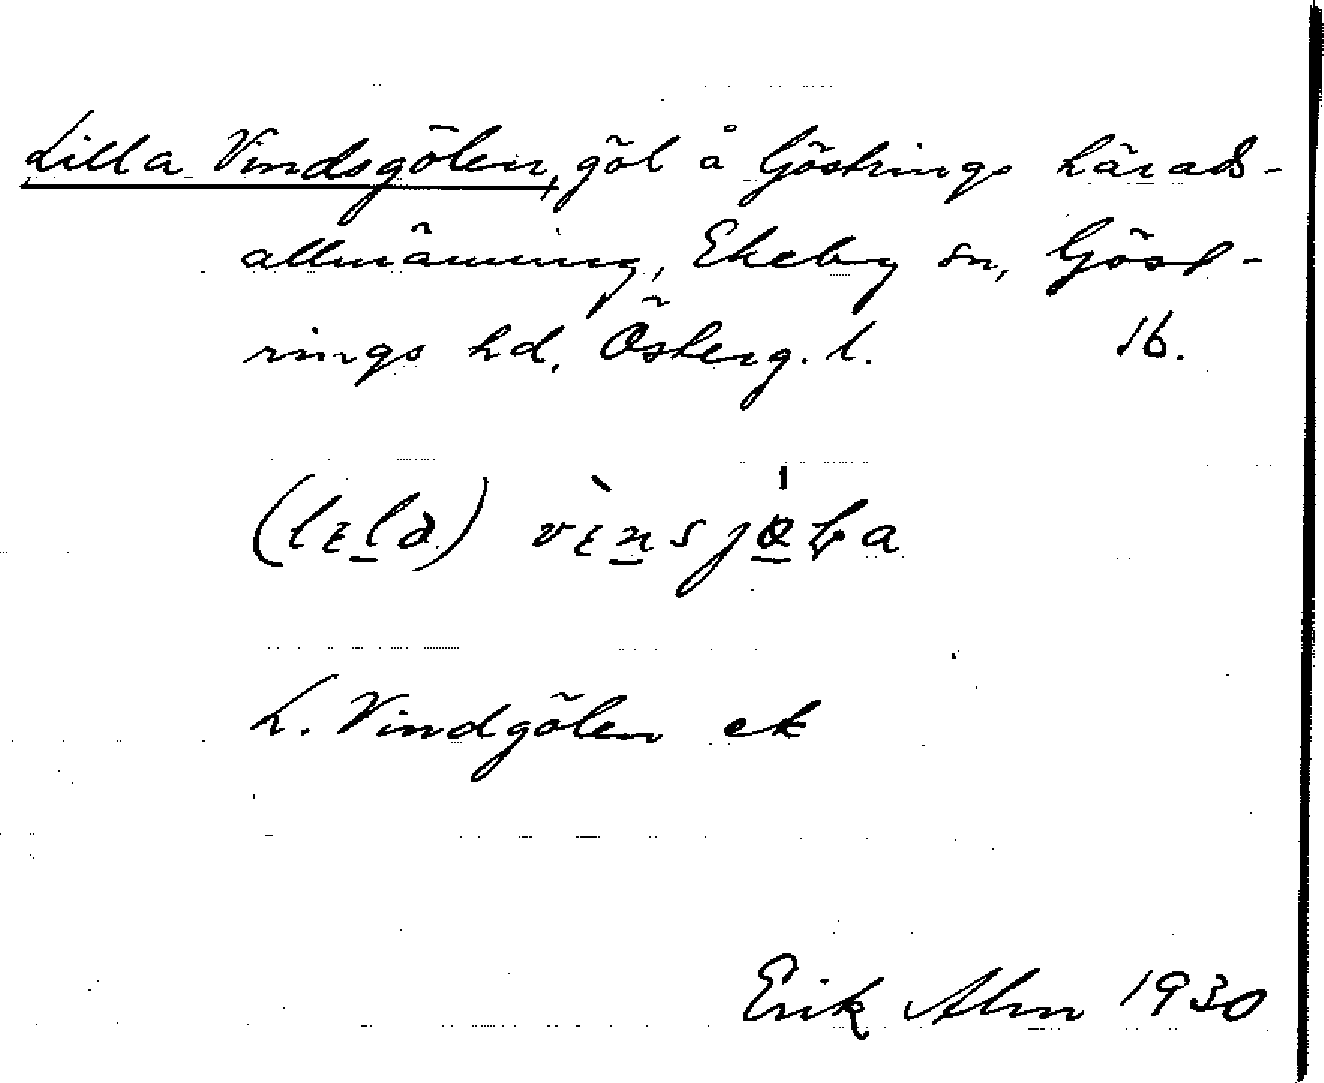 Lilla Vindsgölen, göl å Göstrings härads-
allmänning, Ekeby sn, Göst-
rings hd, Österg. l. 16.
(lɪla) vɪ̀nsjöla
L. Vindgölen ek
Erik Alm 1930